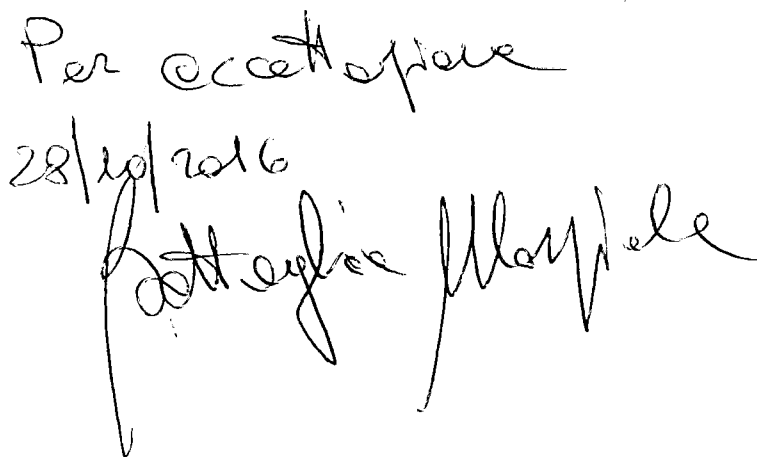 Per accettazione
28/10/2016
Battaglia